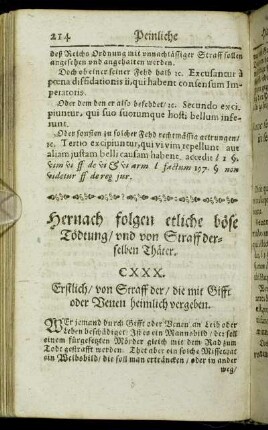 214 Peinliche
deß Reichs Ordnung mit unnachlässiger Straff sollen
angesehen und angehalten werden.
Doch ob einer seiner Fehd hath ꝛc. Excusantur à
pœna diffidationis ii. qui habent consensum Im-
peratoris.
Oder dem den er also befehdet/ ꝛc. Secundo exci-
piuntur, qui suo suorumque hosti bellum infe-
runt.
Oder sonsten zu solcher Fehd rechtmässig getrungen/
ꝛc. Tertio excipiuntur, qui vi vim repellunt aut
aliam justam belli causam habent, accedit l 1 §.
vim vi ff de vi & vi arm l factum 197. § non
videtur ff de reg jur.
Hernach folgen etliche böse
Tödtung/ und von Straff der-
selben Thäter.
CXXX.
Erstlich/ von Straff der/ die mit Gifft
oder Venen heimlich vergeben.
WEr jemand durch Gifft oder Venen an Leib oder
Leben beschädiget/ Ist es ein Mannsbild/ der soll
einem fürgesetzten Mörder gleich mit dem Rad zum
Todt gestrafft werden. Thet aber ein solche Missethat
ein Weibsbild/ die soll man ertränken/ oder in ander
weg/